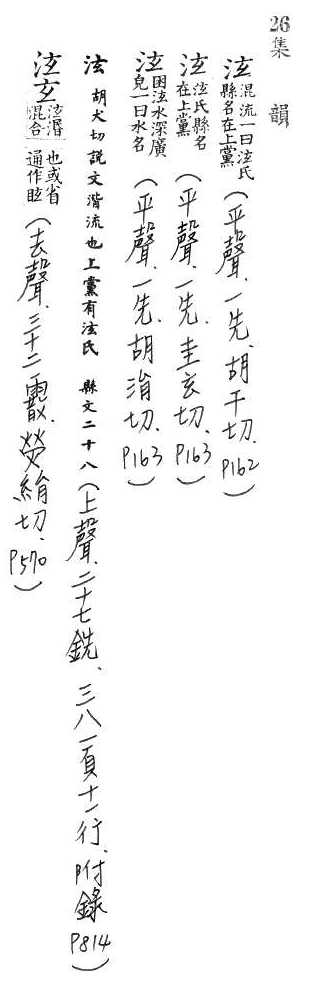 26集 韻
泫混流一曰泫氏縣名在上黨(平聲、一先、胡千切、P162)
泫泫氏縣名在上黨(平聲、一先、圭玄切、P163)
泫困泫水深廣皃一曰水名(平聲、一先、胡涓切、P163)
泫 胡犬切説文湝流也上黨有泫氏 縣文二十八(上聲、二十七銑、三八一頁十一行、附錄P814)
泫玄泫潛混合也或省通作眩(去聲、三十二霰、熒絹切、P570)